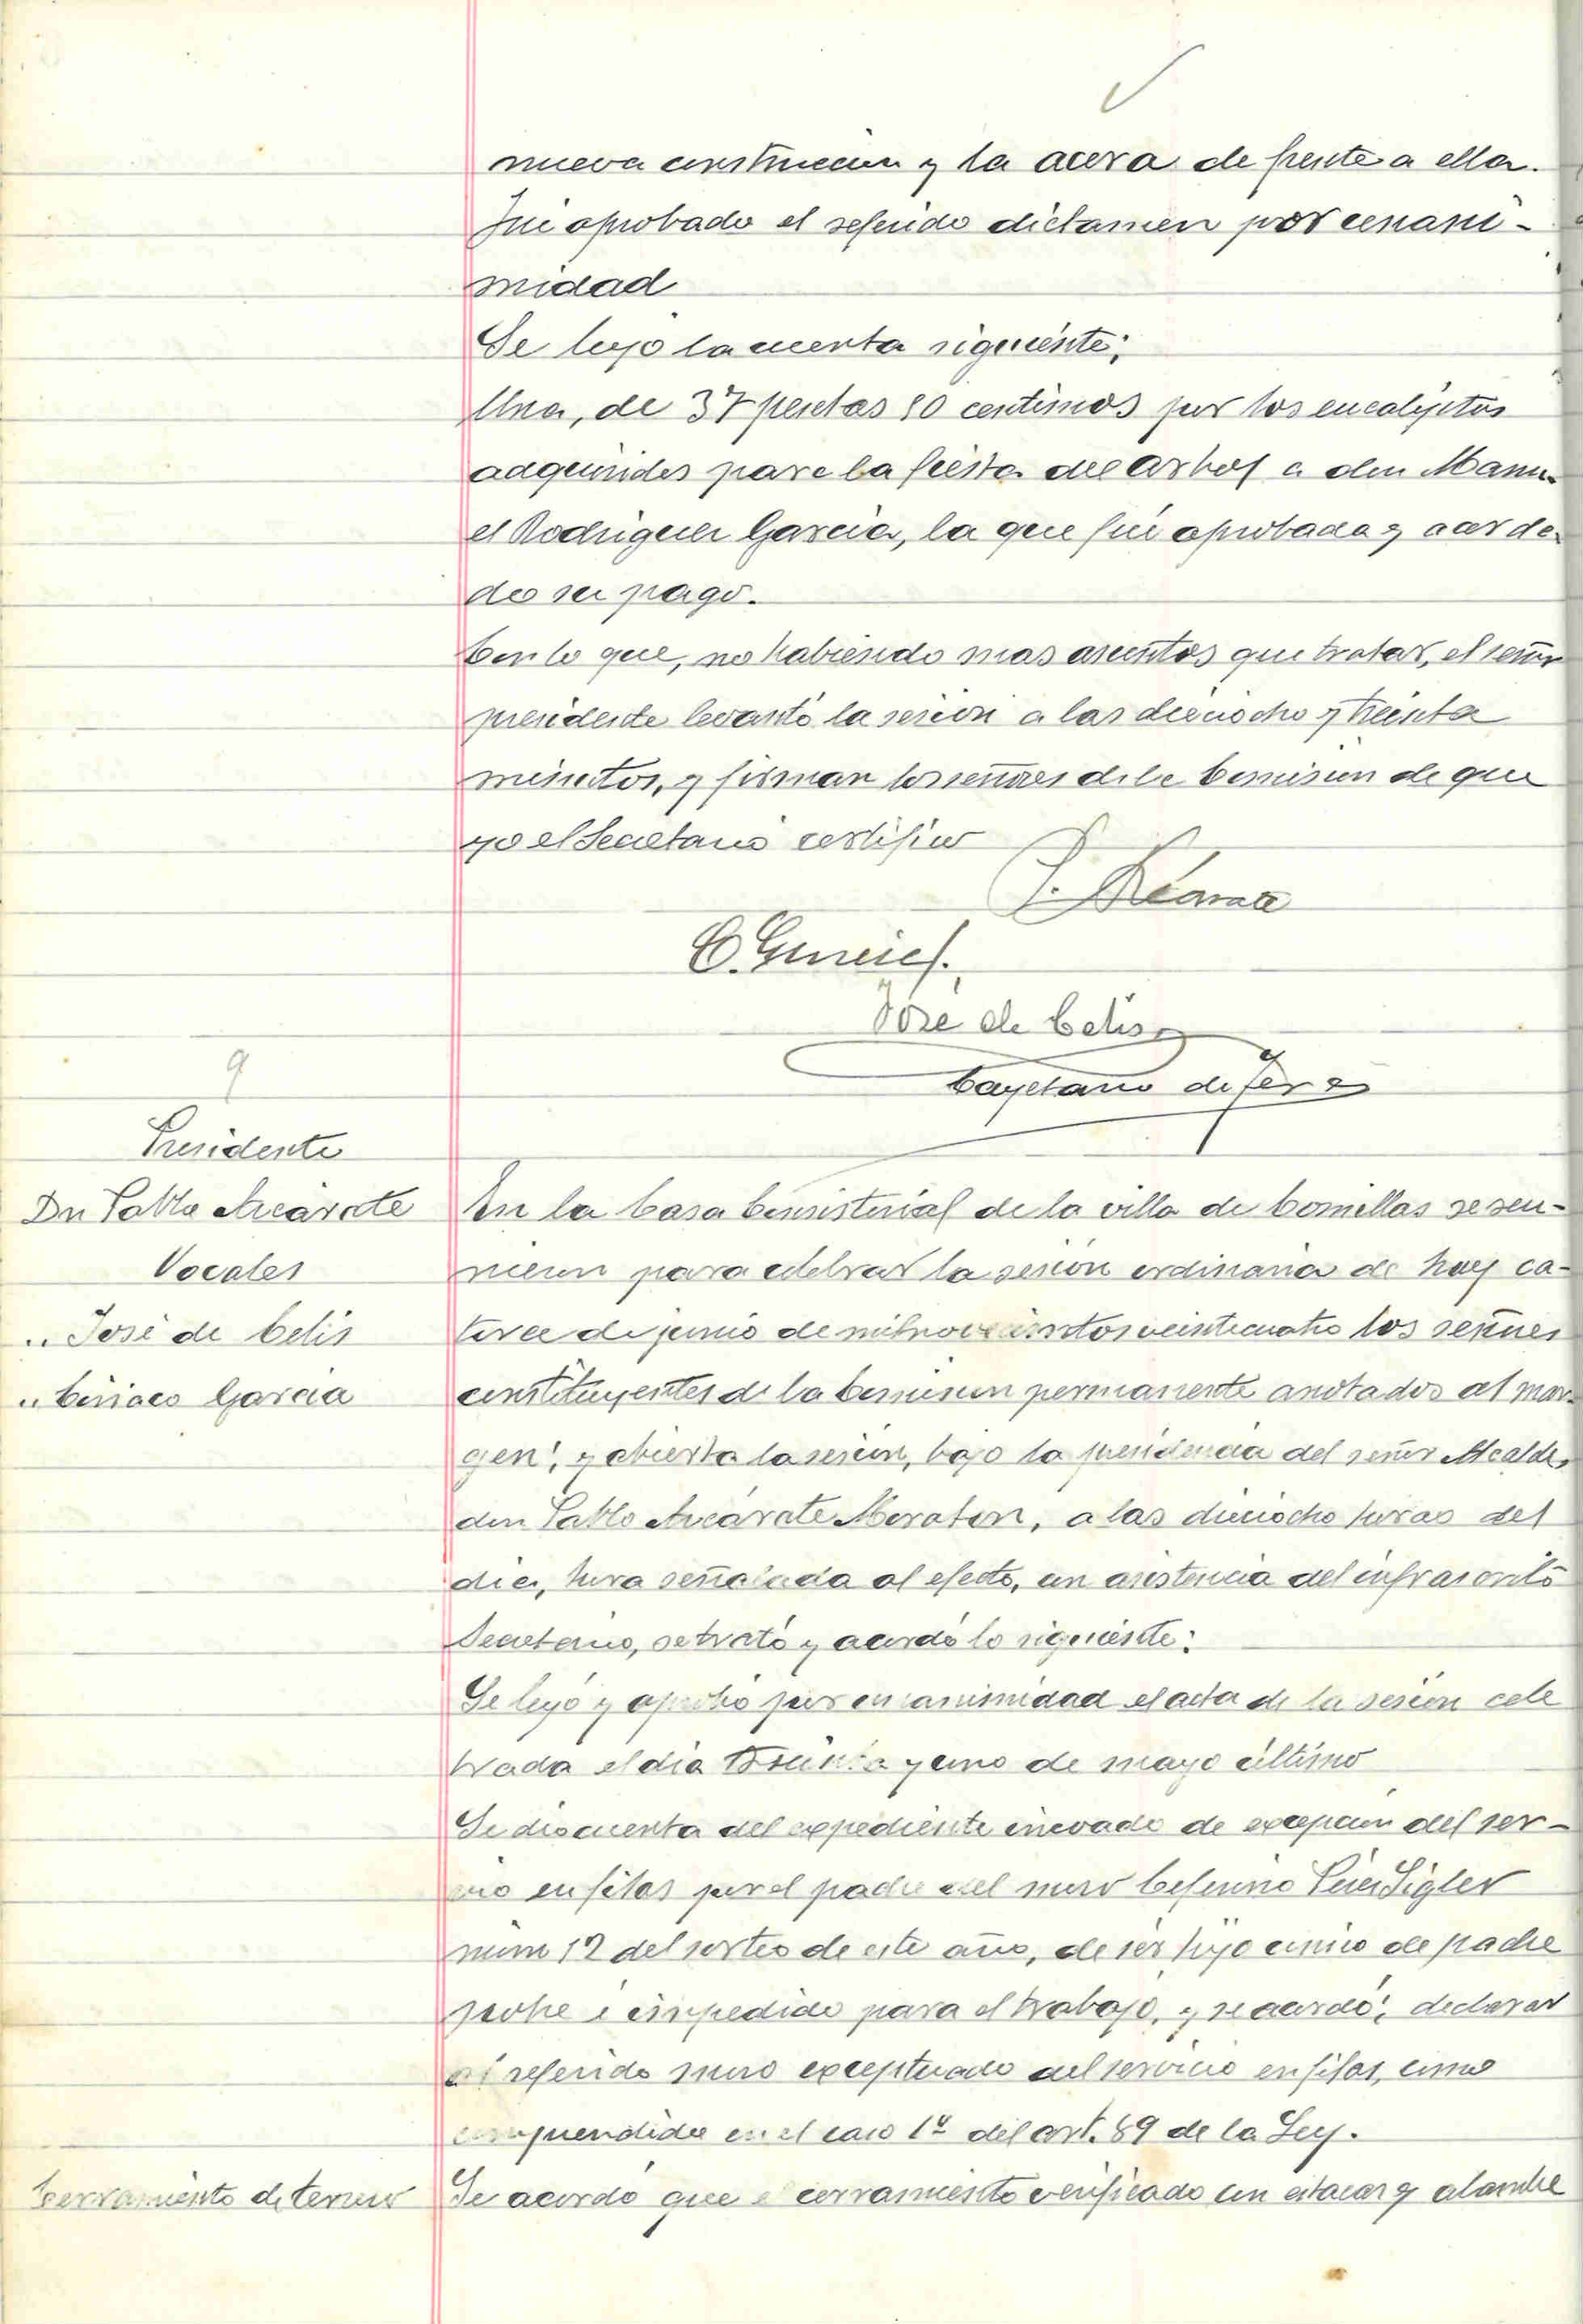 nueva construccion y la acera de frente a ella.
Fué aprobado el referido dictamen por unani-
midad
Se leyó la cuenta siguiente:
Una, de 37 pesetas 80 centimos por los eucaliptus
adquiridos para la fiesta del Arbol a don Manu-
el Rodriguez Garcia, la que fué aprobada y acorda-
do su pago.
Con lo que, no habiendo mas asuntos que tratar, el señor
presidente levantó la sesión a las dieciocho y treinta
minutos, y firman los señores de la Comision de que
yo el Secretario certifico
P. Azcárate
C. Garcia
José de Celis
Cayetano de
9
Presidente
Dn Pablo Azcárate
Vocales
" José de Celis
" Ciriaco Garcia
En la Casa Consistorial de la villa de Comillas se reu-
nieron para celebrar la sesión ordinaria de hoy ca-
torce de junio de mil novecientos veinticuatro los señores
constituyentes de la Comision permanente anotados al mar-
gen; y abierta la sesion, bajo la presidencia del señor Alcalde,
don Pablo Azcárate Moraton, a las dieciocho horas del
dia, hora señalada al efecto, con asistencia del infrascrito
Secretario, se trató y acordó lo siguiente:
Se leyó y aprobó por unanimidad el acta de la sesión cele
brada el día treinta y uno de mayo último
Se dio cuenta del expediente incoado de excepcion del ser-
vicio en filas por el padre del mozo Ceferino Sigler
núm 12 del sorteo de este año, de ser hijo unico de padre
pobre é impedido para el trabajo, y se acordó; declarar
al referido mozo exceptuado del servicio en filas, como
comprendido en el caso 1º del art. 89 de la Ley.
Cerramiento de terreno
Se acordó que el cerramiento verificado con estacas y alambre